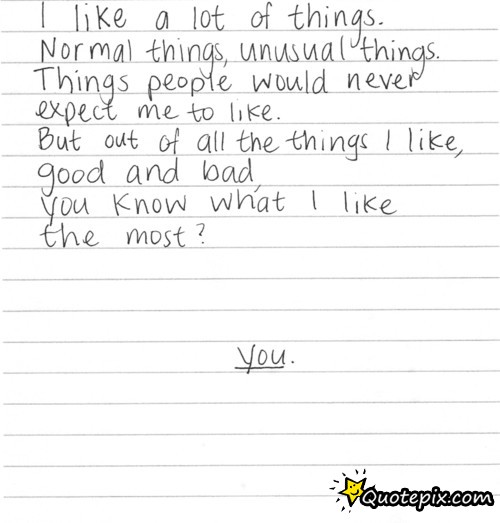 I like a lot of things.
Normal things, unusual things.
Things people would never
expect me to like.
But out of all the things I like,
good and bad,
you know what I like
the most?
you.
Quotepix.com